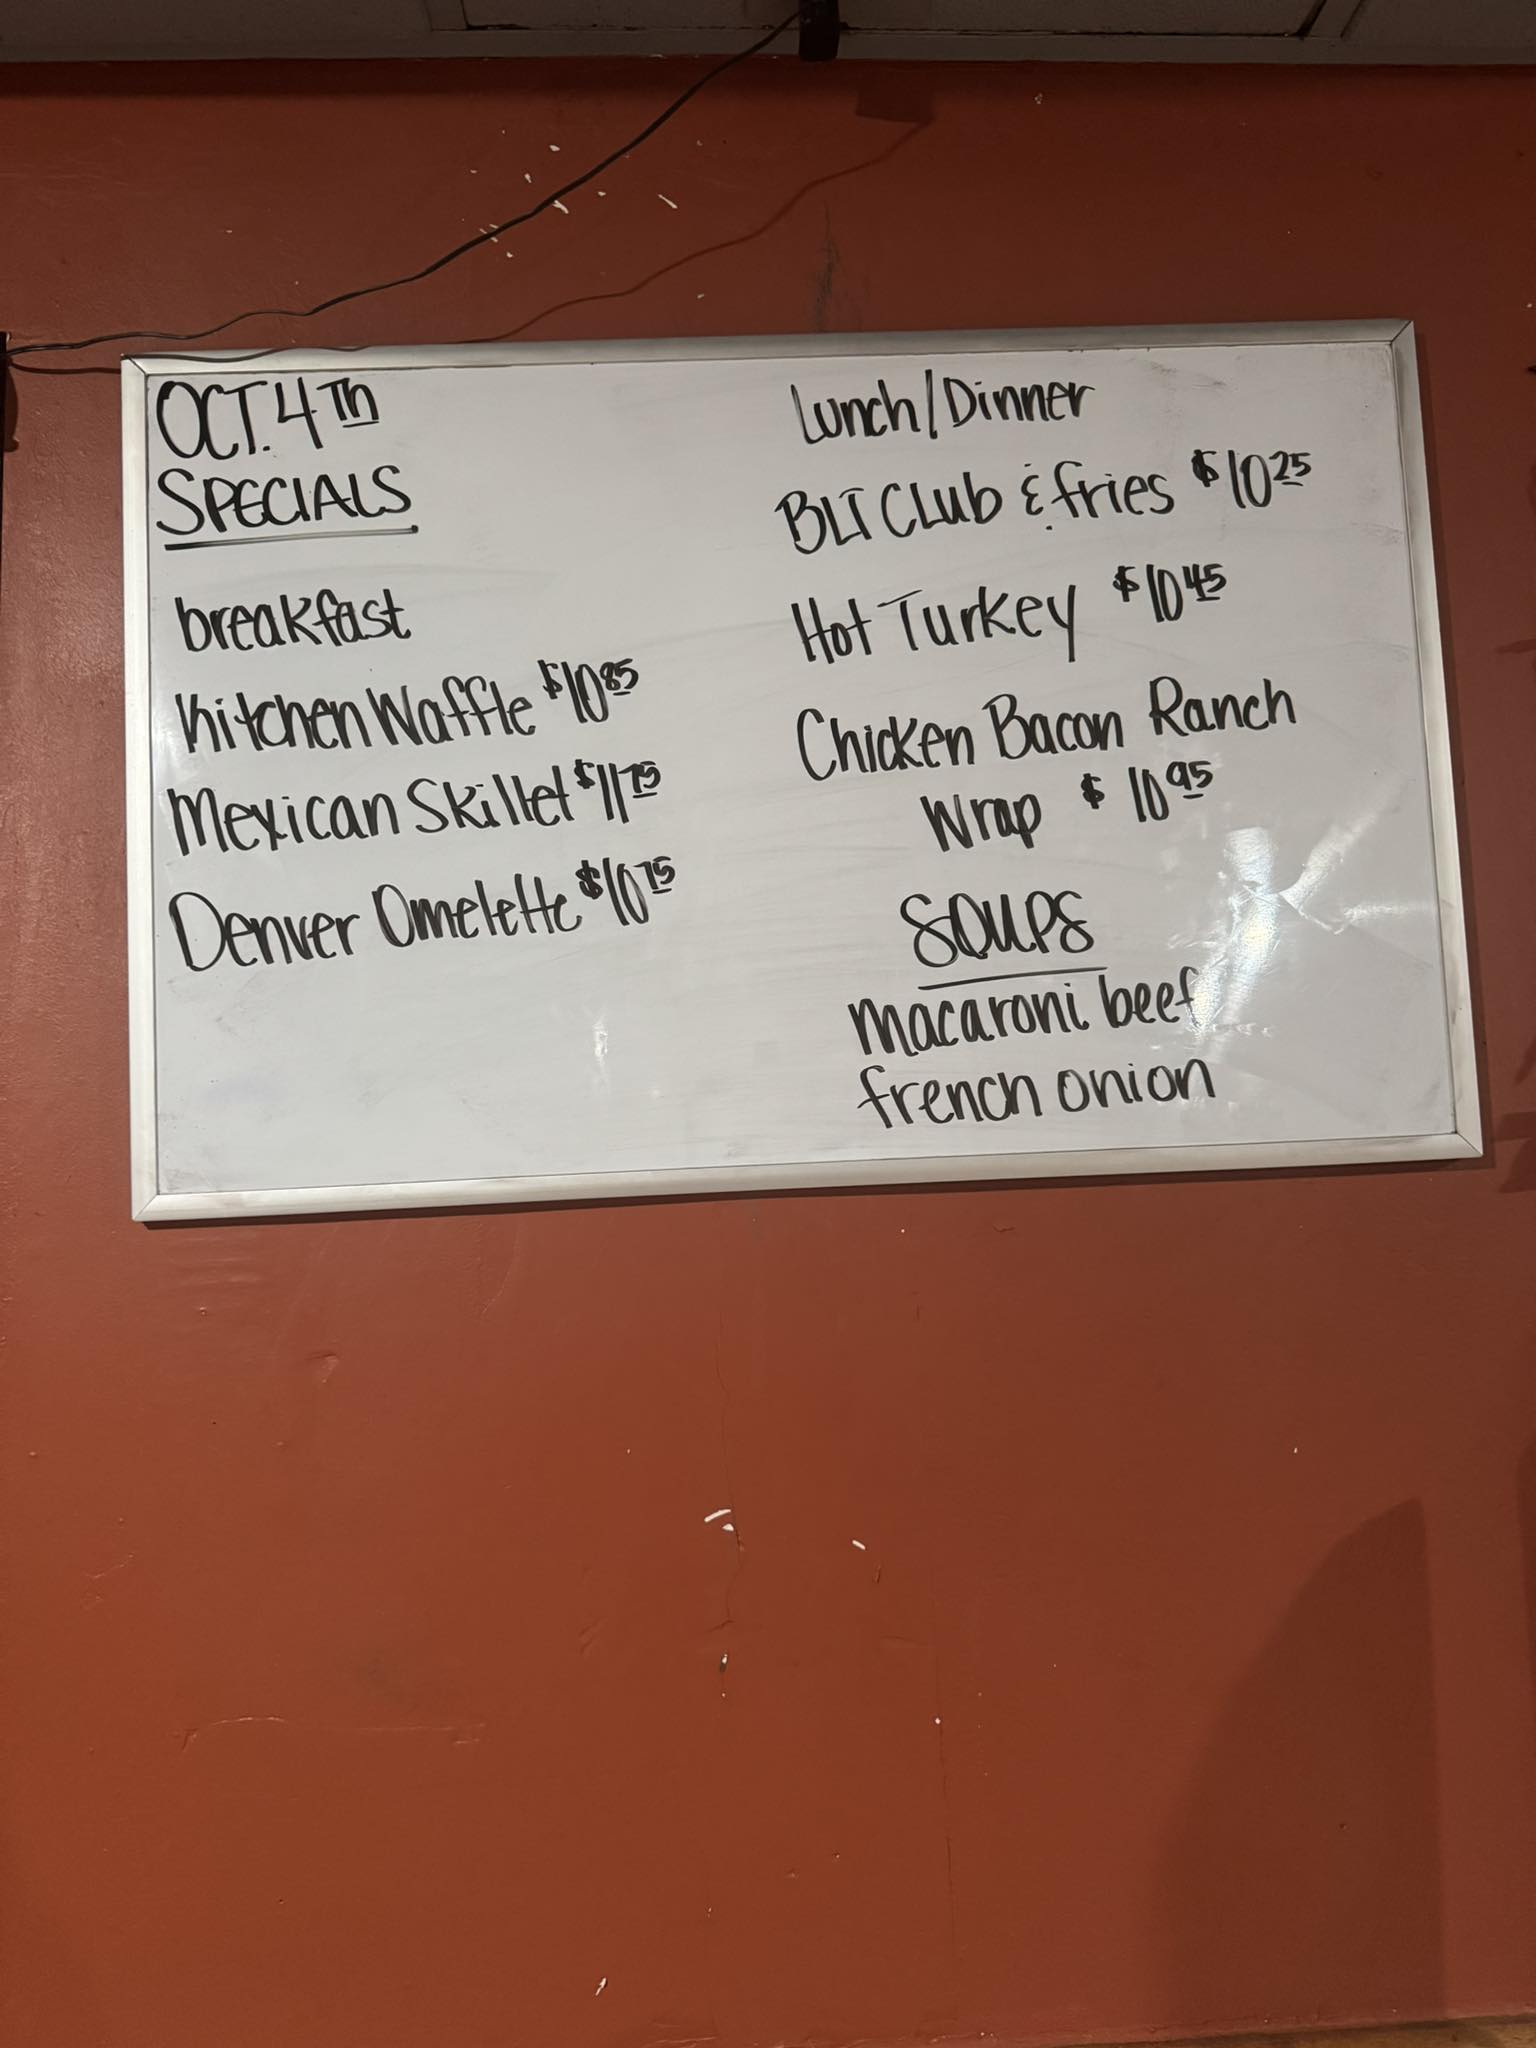 OCT. 4Th
SPECIALS
breakfast
Kitchen Waffle $10 85
Mexican Skillet $11 75
Denver Omelette $10 75
Lunch/Dinner
BLT Club & fries $10 25
Hot Turkey $10 45
Chicken Bacon Ranch
Wrap $ 10 95
SOUPS
Macaroni beef
french onion